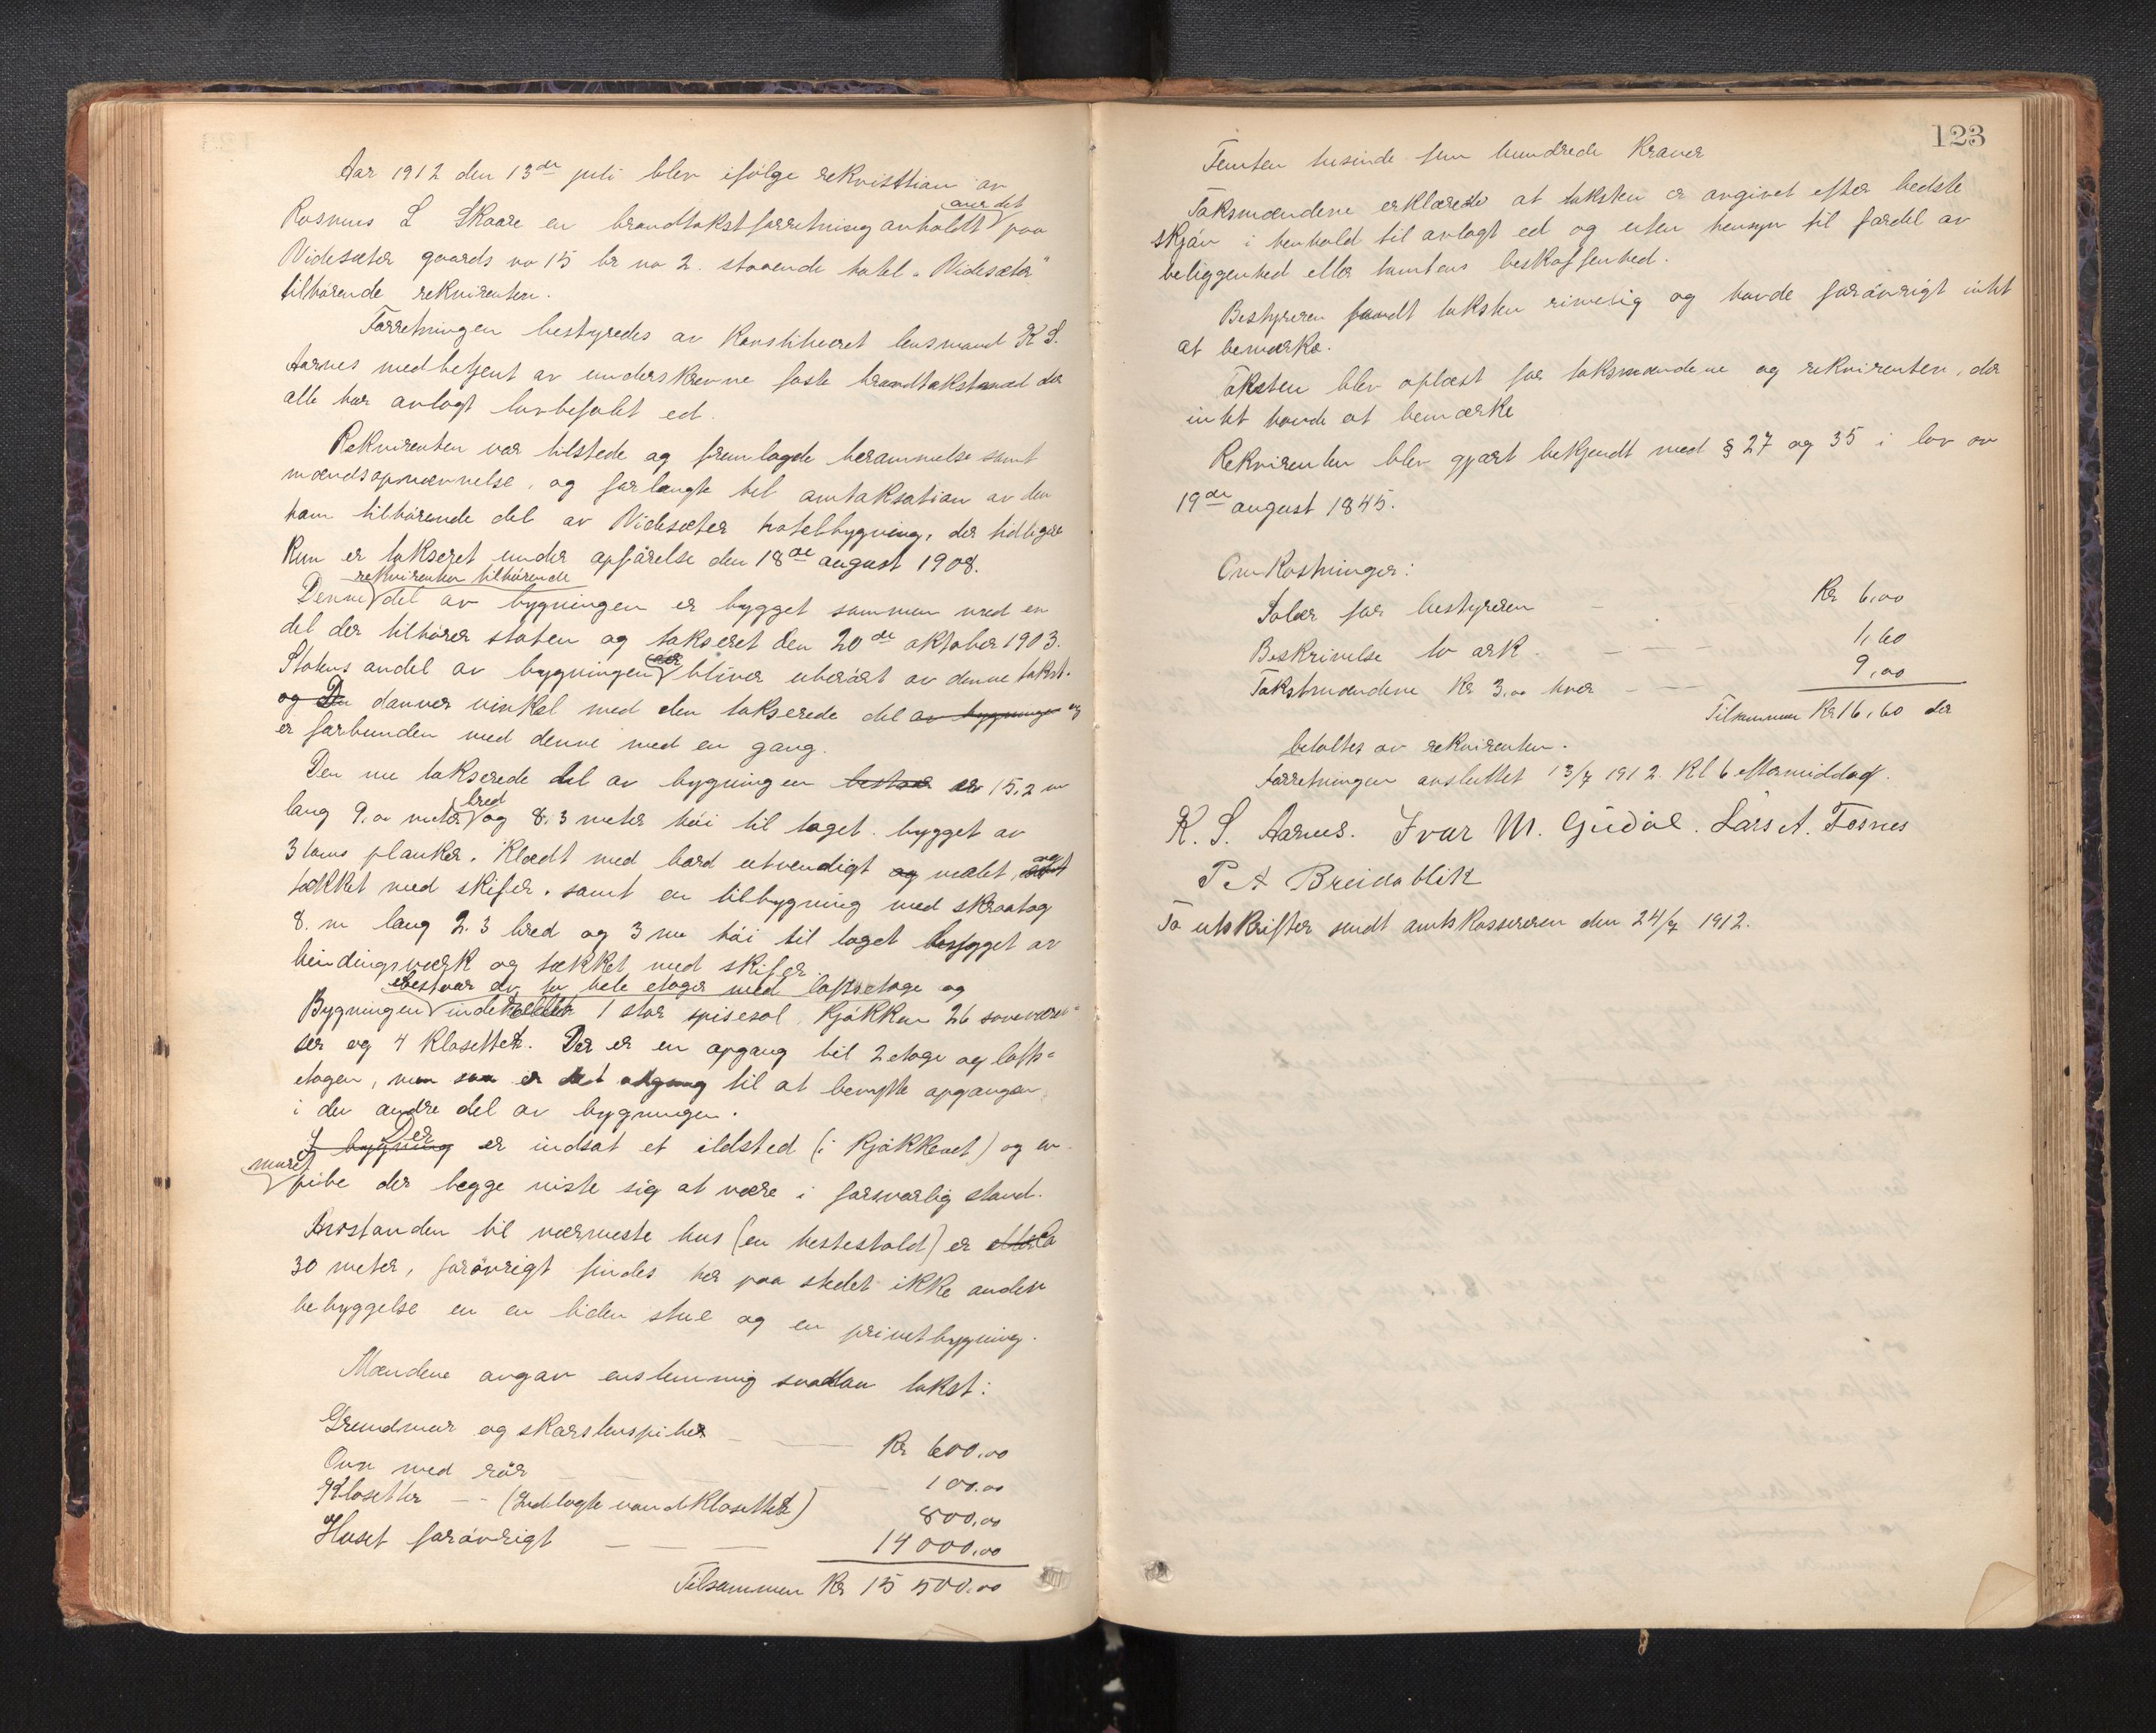 Aar 1912 den 13de juli blev ifølge rekvisition av
Rasmus L Skaare en brandtakstforretning avholdt over det paa
Videsæter gaards no 15 br no 2. staaende hotel "Videsæter"
tilhørende rekvirenten.
Forretningen bestyredes av konstitueret lensmand K S.
Aarnes med betjent av underskrevne faste brandtakstmænd der
alle har avlagt lovbefalet ed.
Rekvirenten var tilstede og fremlagde berammelse samt
mændsopnævnelse, og forlangte til omtaksation av den
ham tilhørende del av Videsæter hotelbygning, der tidligere
kun er takseret under opførelse den 18de august 1908.
Denne rekvirenten tilhørende del av bygningen er bygget sammen med en
del der tilhører staten og takseret den 20de oktober 1903.
Statens andel av bygningen bliver uberørt av denne takst.
og Den danner vinkel med den takserede del av bygningen og
er forbunden med denne med en gang.
Den nu takserede del av bygningen bestaar er 15,2 m
lang 9,0 meter bred og 8.3 meter høi til taget. bygget av
3 toms planker. Klædt med bord utvendigt og malet, og
tækket med skifer. samt en tilbygning med skraatag
8. m lang 2.3 bred og 3 m høi til taget bygget av
bindingsverk og tækket med skifer.
Bygningen bestaar av to hele etager med loftsetage og
indeholder 1 stor spisesal, Kjøkken 26 soveværel-
ser og 4 Klosetter. Der er en opgang til 2 etage og lofts-
etagen, men saa er det adgang til at benytte opgangen
i den andre del av bygningen.
I bygning Der er indsat et ildsted (i Kjøkkenet) og en
muret pibe der begge viste sig at være i forsvarlig stand.
Avstanden til nærmeste hus (en hestestald) er Ca
30 meter, forøvrigt findes her paa stedet ikke anden
bebyggelse en en liden stue og en privetbygning.
Mændene avgav enstemmig saadan takst:
Grundmur og skorstenspiber — — Kr 600,00
Ovn med rør — — — 100.00
Klosetter — - (Indlagte vandklosetter) 800,00
Huset forøvrigt — — — 14 000,00
Tilsammen Kr 15 500,00
123
Femten tusinde fem hundrede Kroner
Taksmændene erklærede at taksten er avgivet efter bedste
skjøn i henhold til avlagt ed og uten hensyn til fordel av
beliggenhed eller tomtens beskaffenhed.
Bestyreren fandt taksten rimelig og havde forøvrigt intet
at bemærke.
Taksten blev oplæst for taksmændene og rekvirenten, der
intet havde at bemærke
Rekvirenten blev gjort bekjendt med § 27 og 35 i lov av
19de august 1845.
Omkostninger:
Salær for bestyreren — Kr 6,00
Beskrivelse to ark. — — — 1,60
Takstmændene Kr 3,00 hver — — 9,00
Tilsammen Kr 16,60 der
betaltes av rekvirenten.
Forretningen avsluttet 13/7 1912. Kl 6 eftermiddag.
K. S. Aarnes. Ivar M. Gúdal. Lars A. Fosnes
P A Breidablik
To utskrifter sendt amtskassereren den 24/7 1912.